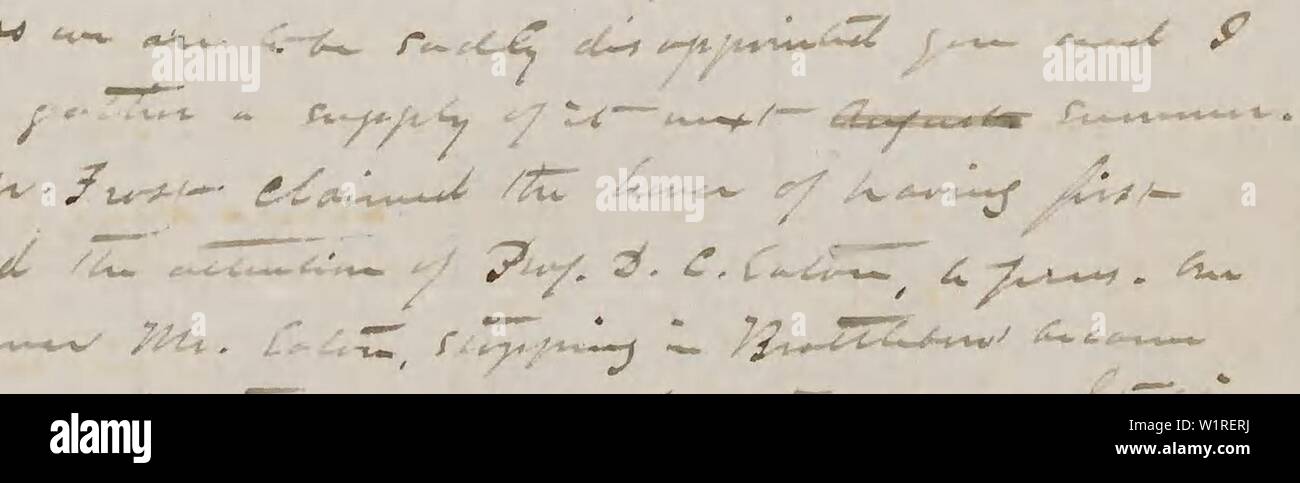 we are to be sadly disappointed you and I
gather a supply of it next August summer.
Frost claimed the honor of having first
the attention of Prof. D. C. Eaton, to ferns.
Mr. Eaton, stopping in Brattleboro' became
alamy
a
a
alamy
a
a
a
alamy
a
alamy
Image ID: W1RERJ
www.alamy.com